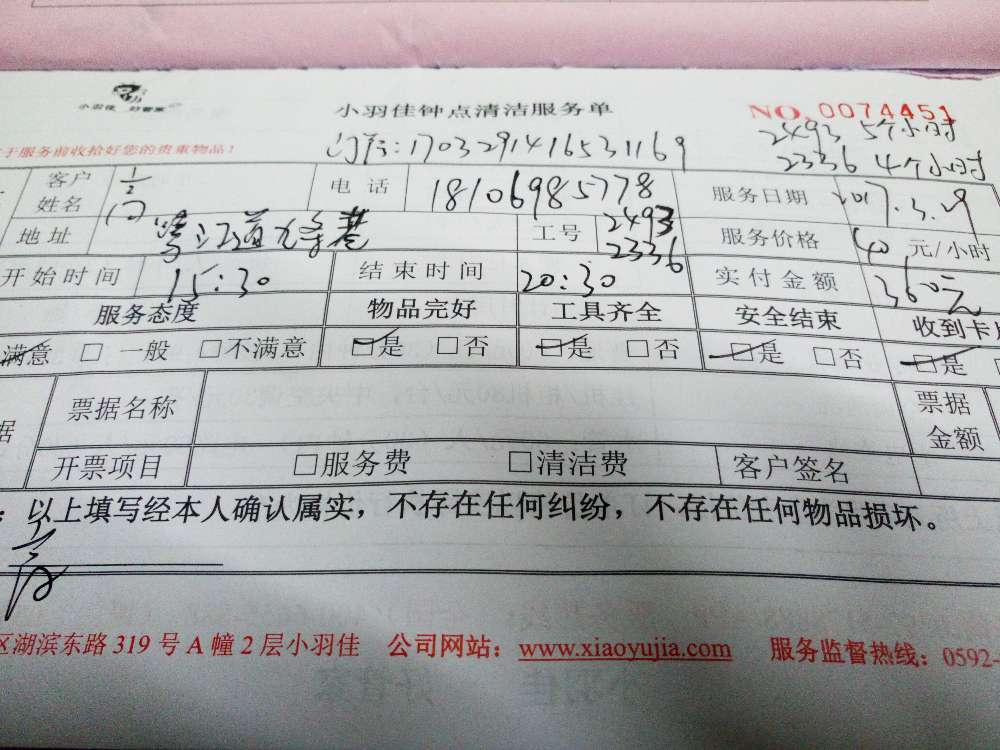 小羽佳 好管家
小羽佳钟点清洁服务单 NO. 0074451
于服务前收拾好您的贵重物品！
2493 5个小时
2336 4个小时
客户姓名 电话 18106985778 服务日期 2017.3.29
地址 鹭江道九条巷 工号 2493 2336 服务价格 40 元/小时
开始时间 15:30 结束时间 20:30 实付金额 360元
服务态度 物品完好 工具齐全 安全结束 收到卡
满意 □ 一般 □不满意 □是 □否 □是 □否 □是 □否 □是
票据名称 票据金额
开票项目 □服务费 □清洁费 客户签名
：以上填写经本人确认属实，不存在任何纠纷，不存在任何物品损坏。
区湖滨东路 319 号 A 幢 2 层小羽佳 公司网站：www.xiaoyujia.com 服务监督热线：0592-